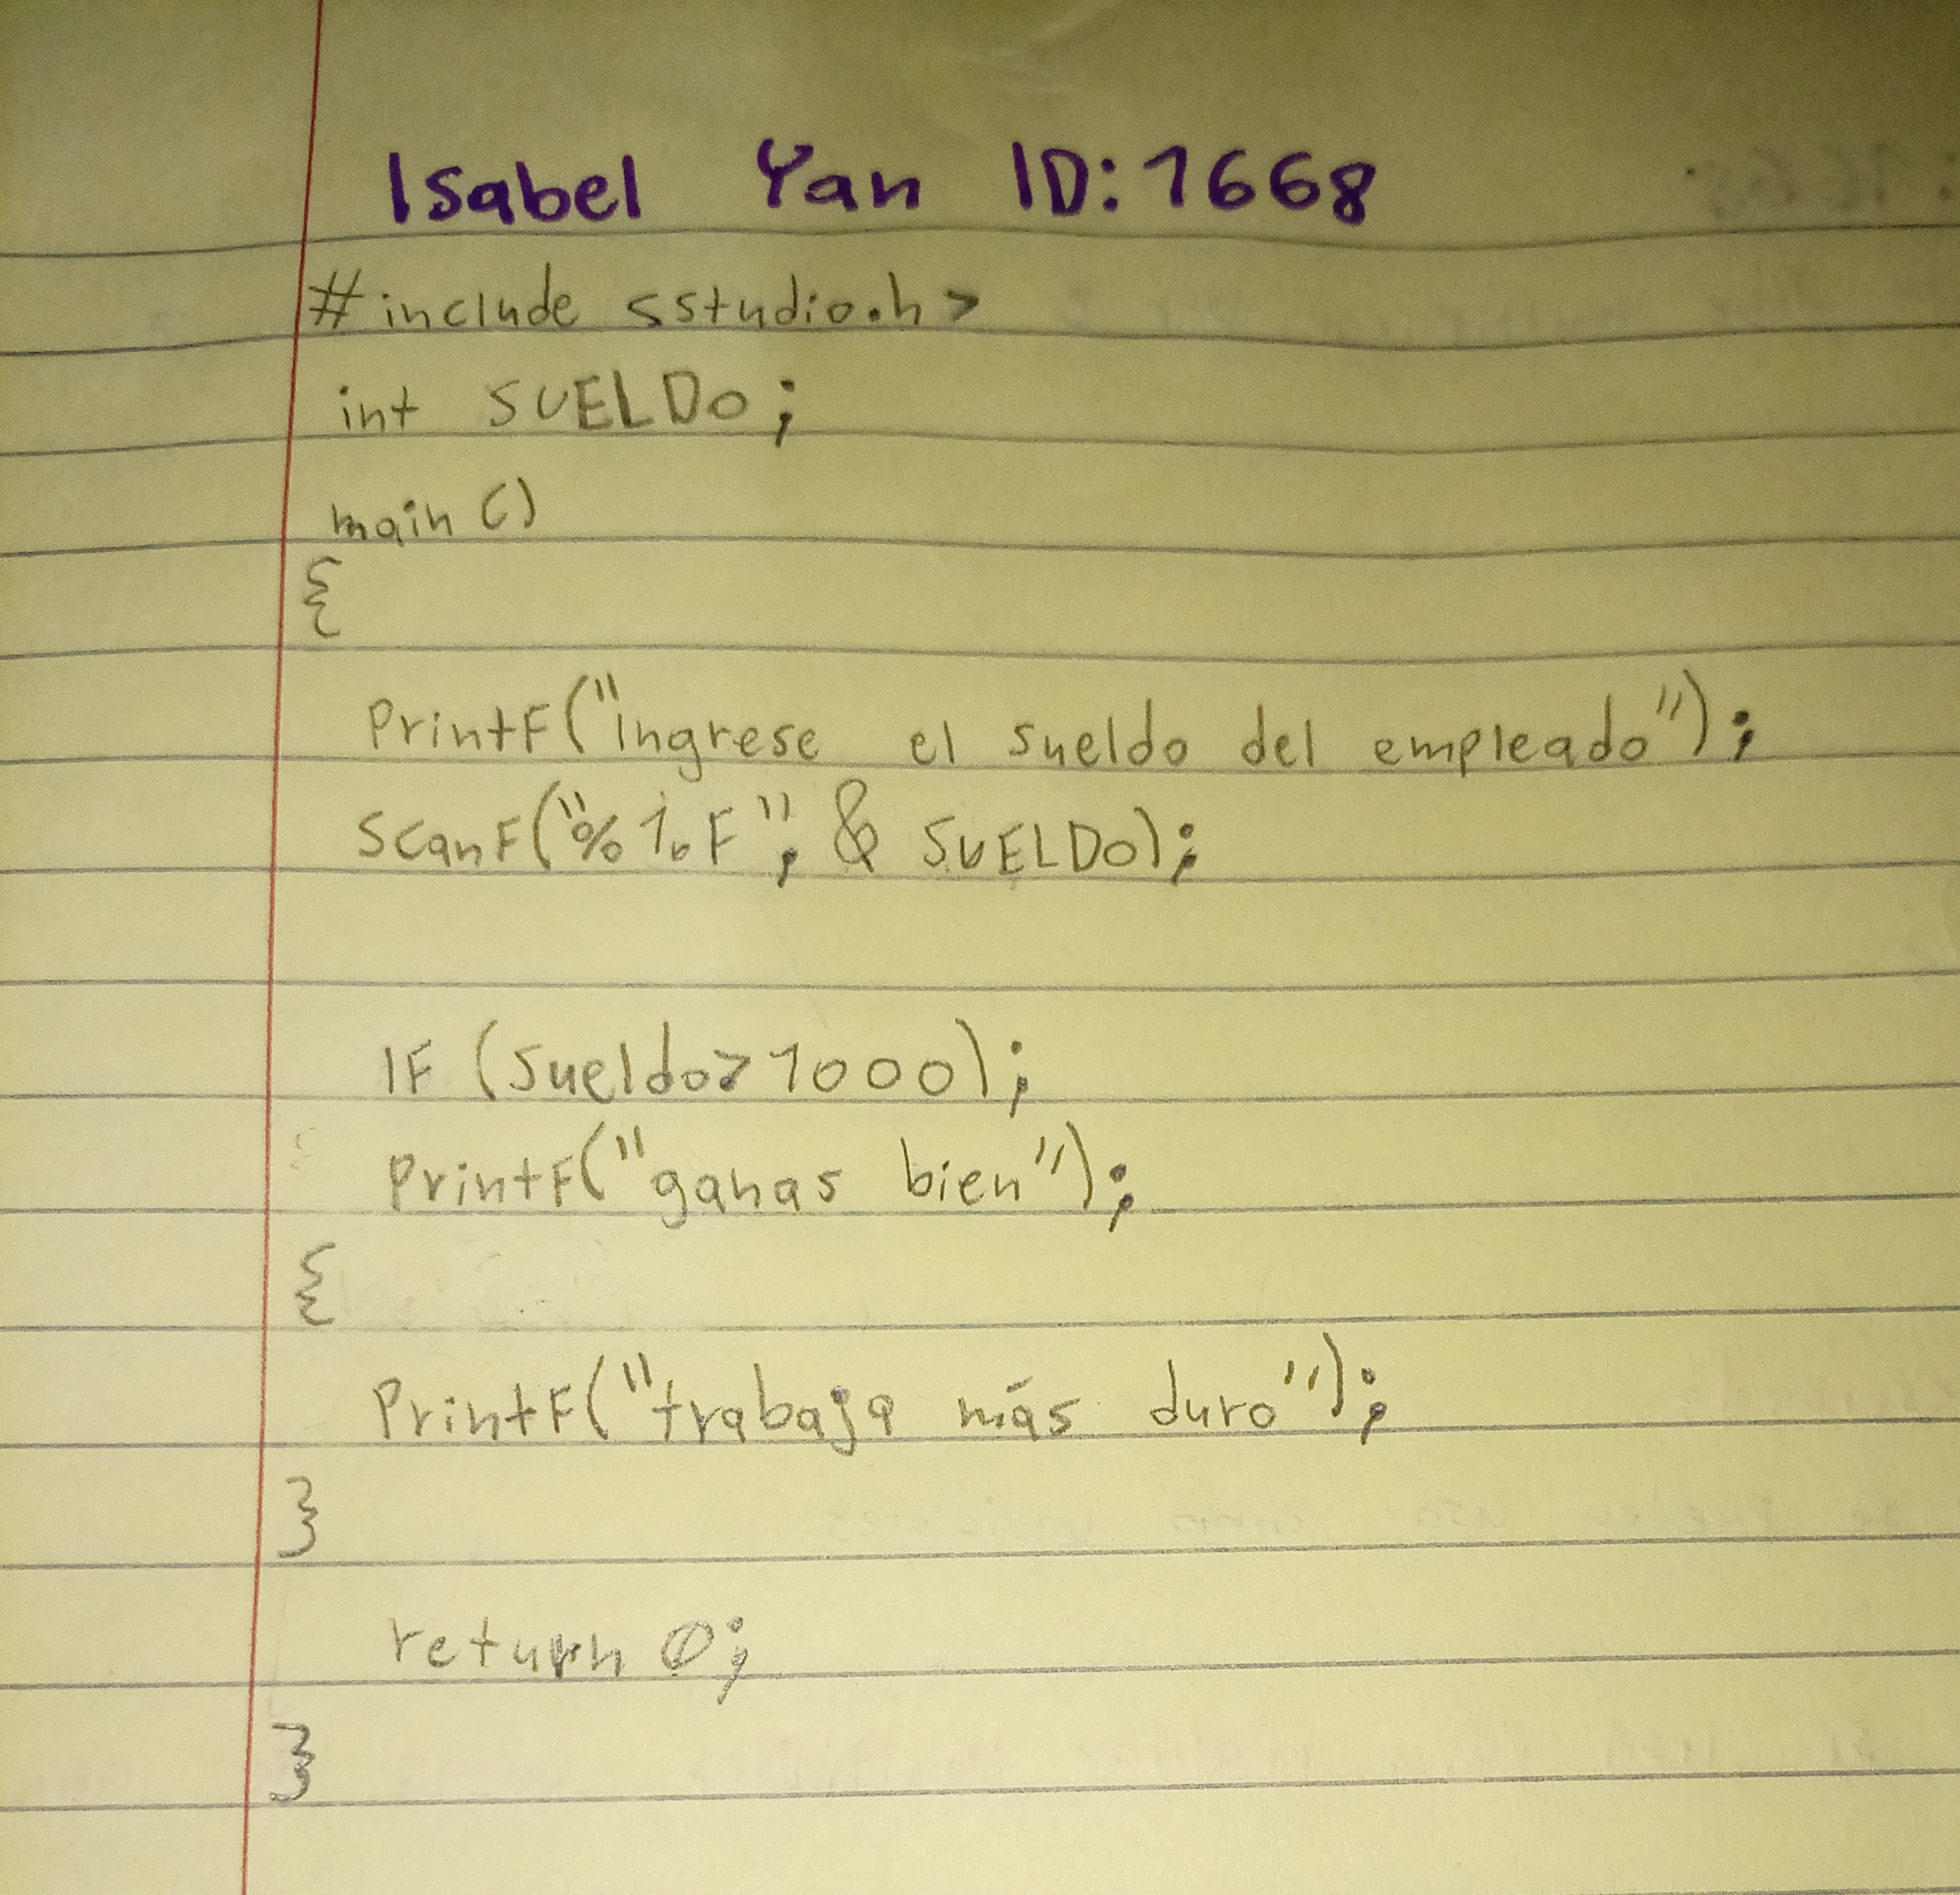 Isabel Yan ID: 1668
#include <studio.h>
int SUELDO;
main ()
{
PrintF("Ingrese el sueldo del empleado");
ScanF("%1.F"; & SUELDO);
IF (Sueldo>1000);
PrintF("ganas bien");
{
PrintF("trabaja más duro");
}
return 0;
}